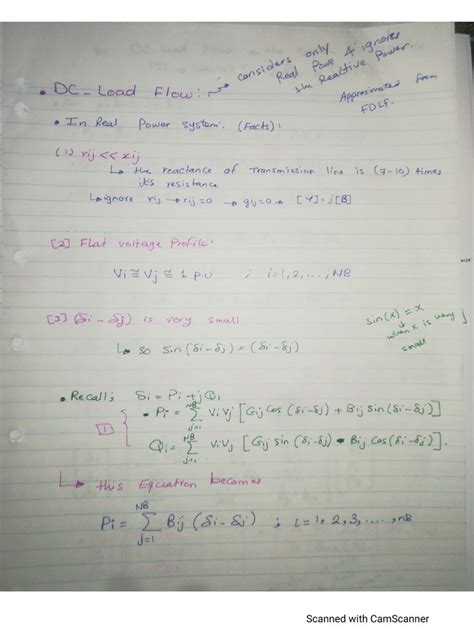 • DC-Load Flow: → considers only
Real Powe & ignores
the Reactive Power.
Approximated from
FDLF.
• In Real Power System. (Facts):
(1) rij << xij
↳ the reactance of Transmission line is (7-10) times
it's resistance
↳ ignore rij → rij = 0 → gij = 0 → [Y] = j[B]
[2] Flat voltage Profile:
Vi ≅ Vj ≅ 1 p.u ; i=1, 2, ..., NB
[3] (δi - δj) is very small
sin(x) = x
↓
when x is very
small
↳ so Sin (δi - δj) = (δi - δj)
• Recall; Si = Pi + jQi
[1] • Pi = NB Σ j=1 Vi Vj [Gij Cos (δi - δj) + Bij Sin (δi - δj)]
Qi = NB Σ j=1 Vi Vj [Gij Sin (δi - δj) - Bij Cos (δi - δj)].
↳ this Equation becomes
Pi = NB Σ j=1 Bij (δi - δj) ; i = 1, 2, 3, ...., NB
Scanned with CamScanner